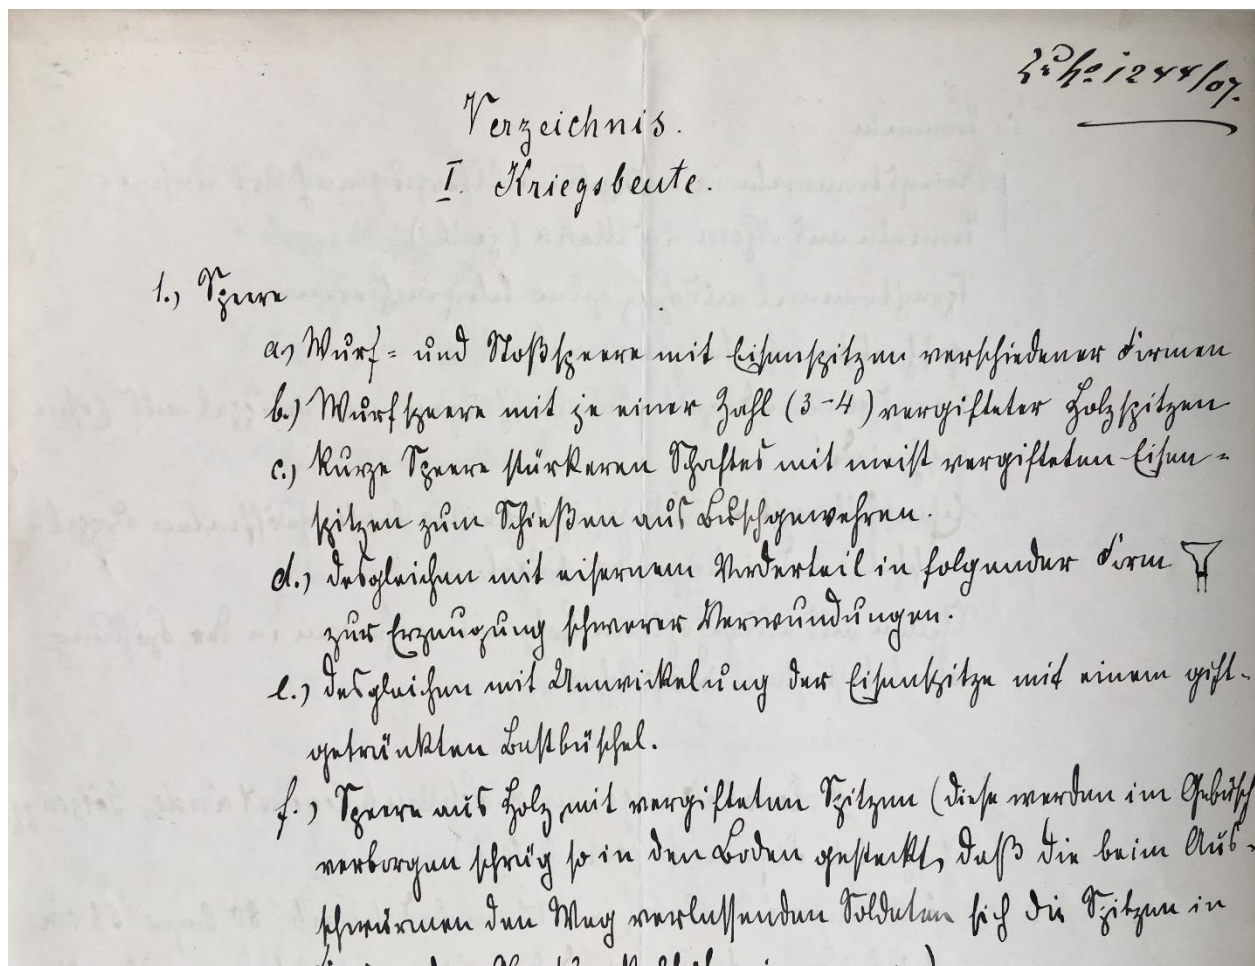 Zu No 1244/07.
Verzeichnis.
I. Kriegsbeute.
1.) Speere
a.) Wurf- und Stoßspeere mit Eisenspitzen verschiedener Formen
b.) Wurfspeere mit je einer Zahl (3-4) vergifteter Holzspitzen
c.) Kurze Speere stärkeren Schaftes mit meist vergifteten Eisen-
spitzen zum Schießen aus Buschgewehren.
d.) desgleichen mit eisernem Vorderteil in folgender Form
zur Erzeugung schwerer Verwundungen.
e.) desgleichen mit Umwickelung der Eisenspitze mit einem gift-
getränkten Bastbüschel.
f.) Speere aus Holz mit vergifteten Spitzen (diese werden im Gebüsch
verborgen schräg so in den Boden gesteckt, daß die beim Aus-
schwärmen den Weg verlassenden Soldaten sich die Spitzen in